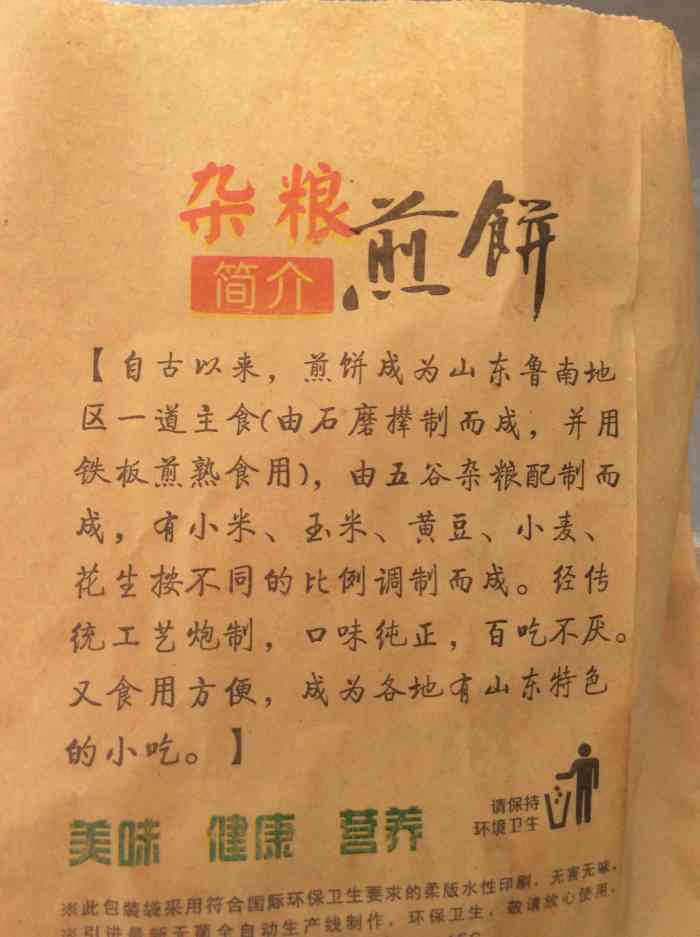 杂粮煎饼
简介
【自古以来，煎饼成为山东鲁南地
区一道主食(由石磨撵制而成，并用
铁板煎熟食用)，由五谷杂粮配制而
成，有小米、玉米、黄豆、小麦、
花生按不同的比例调制而成。经传
统工艺炮制，口味纯正，百吃不厌。
又食用方便，成为各地有山东特色
的小吃。】
请保持
环境卫生
美味 健康 营养
※此包装袋采用符合国际环保卫生要求的柔版水性印刷，无害无味，
※引进最新无菌全自动生产线制作，环保卫生，敬请放心使用，